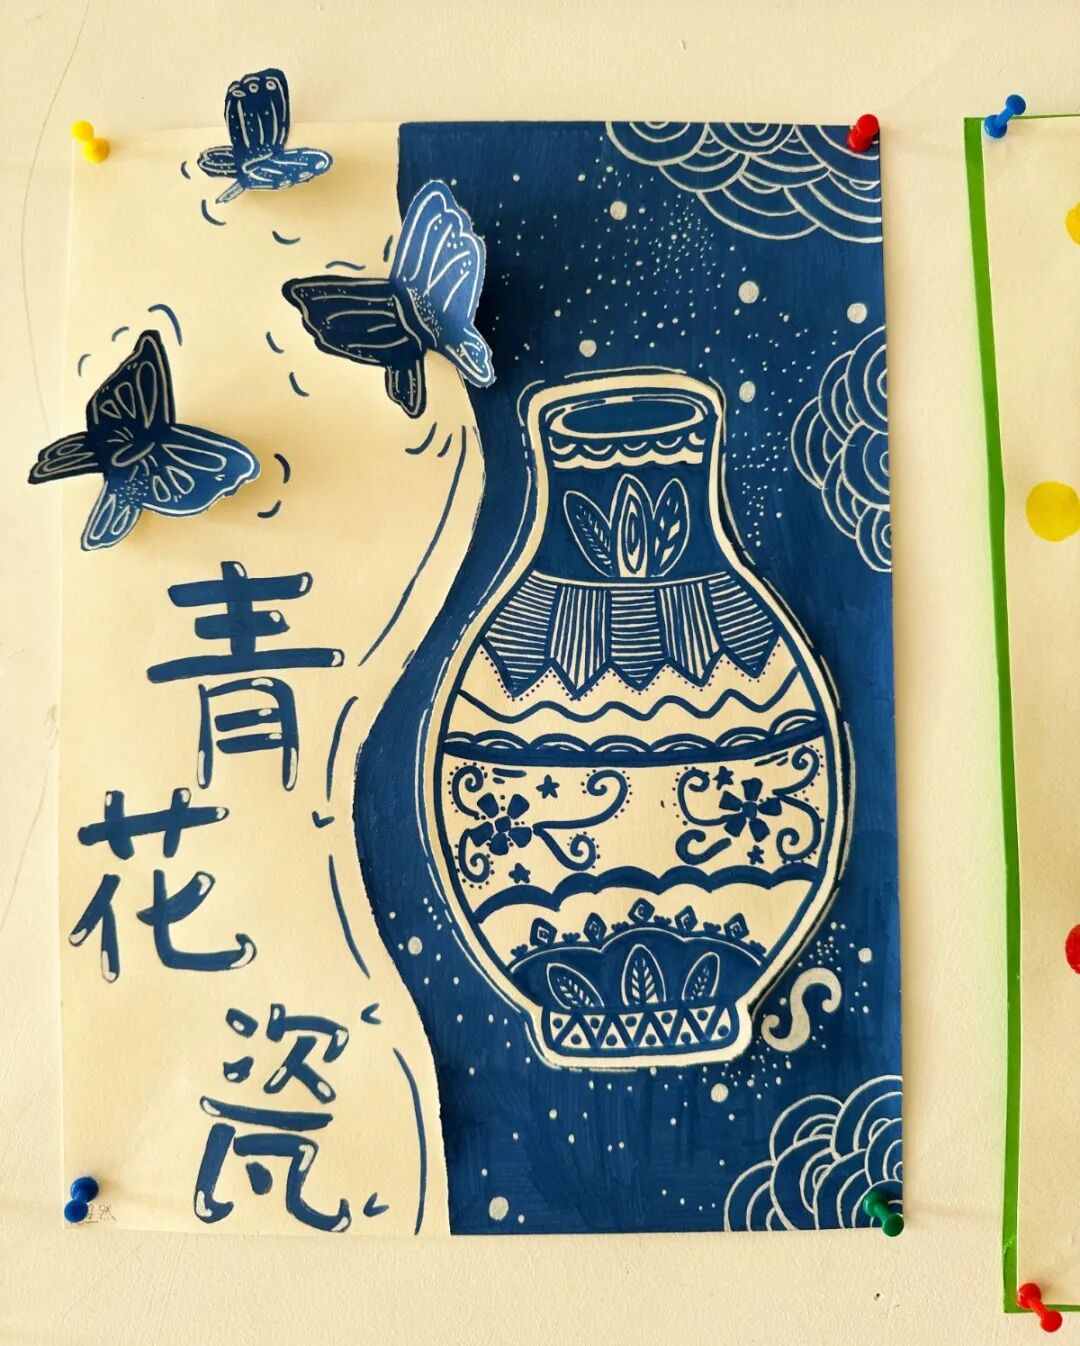 青
花
瓷